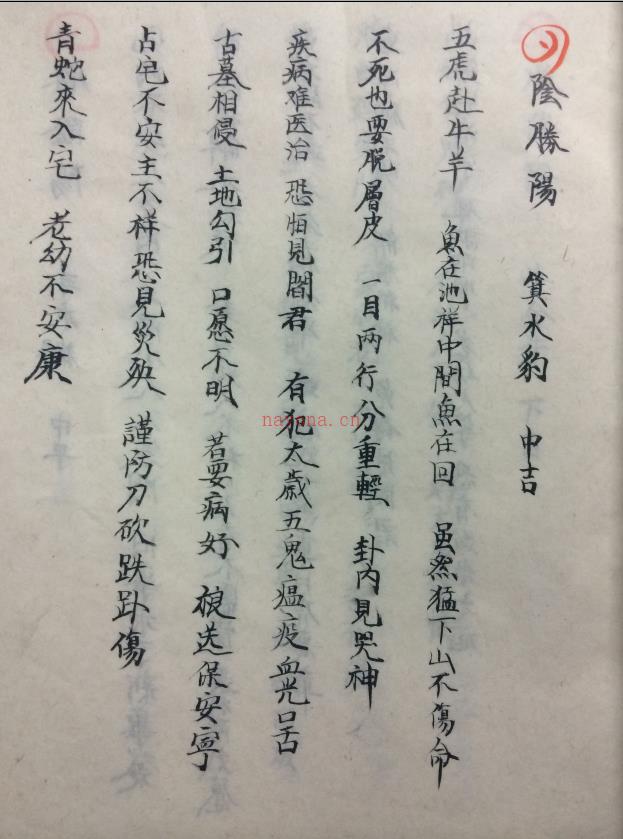 陰勝陽 箕水豹 中吉
五虎赴牛羊 魚在池祥中間魚在回 虽然猛下山不傷命
不死也要脱層皮 一目两行分重輕 卦内見哭神
疾病难医治 恐怕見閻君 有犯太歲五鬼瘟疫血光口舌
古墓相侵 土地勾引 口愿不明 若要病好 送保安寧
占宅不安主不祥恐見災殃 謹防刀砍跌卦傷
青蛇來入宅 老幼不安康
nayona.cn